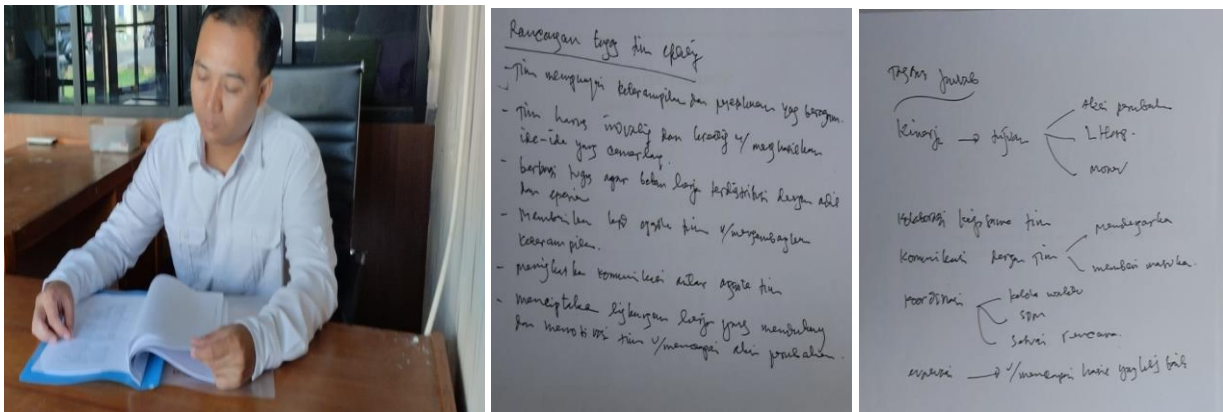 Rancangan tugas tim efektif
- Tim mempunyai keterampilan dan pengalaman yang beragam.
- Tim harus inovatif dan kreatif u/ menghasilkan
ide-ide yang cemerlang.
- berbagi tugas agar beban kerja terdistribusi dengan adil
dan efisien
- Memberikan kpd anggota tim u/mengembangkan
keterampilan.
- meningkatkan komunikasi antar anggota tim
- menciptakan lingkungan kerja yang mendukung
dan memotivasi tim u/mencapai aksi perubahan.
Kinerja → tujuan
Aksi perubahan
monev
Kolaborasi kerjasama tim
Komunikasi dengan Tim
mendengarkan
memberi masukan.
Koordinasi
kelola waktu
SDM
Sesuai rencana.
→ u/mencapai hasil yang lebih baik